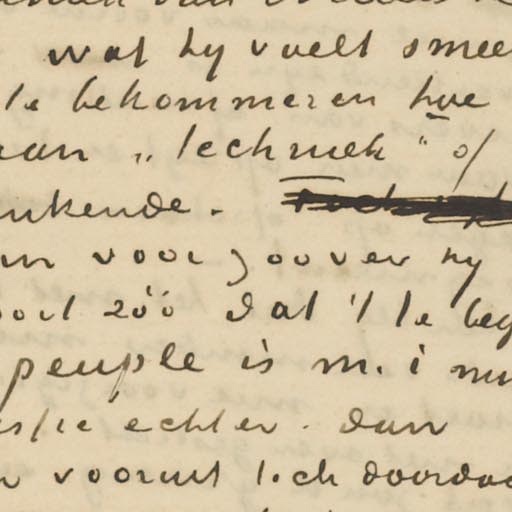 wat hy voelt smee
te bekommeren hoe
aan „techniek" of
nkende.
voor zoover hy
oort zóó dat 't te beg
peuple is m. i nu
echter. dan
vooruit toch doordac